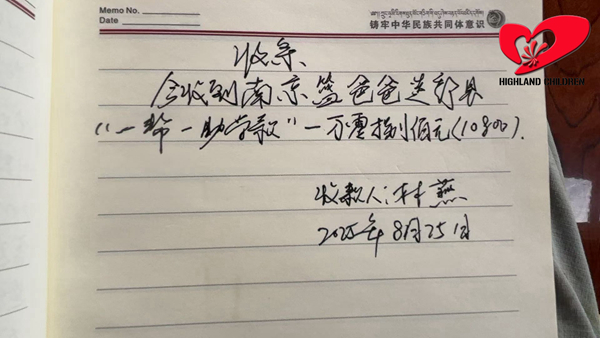 Memo No.
Date
铸牢中华民族共同体意识
HIGHLAND CHILDREN
收条
今收到南京篮爸爸迭部县
“一帮一助学款”一万零捌佰元(10800).
收款人:林燕
2025年8月25日